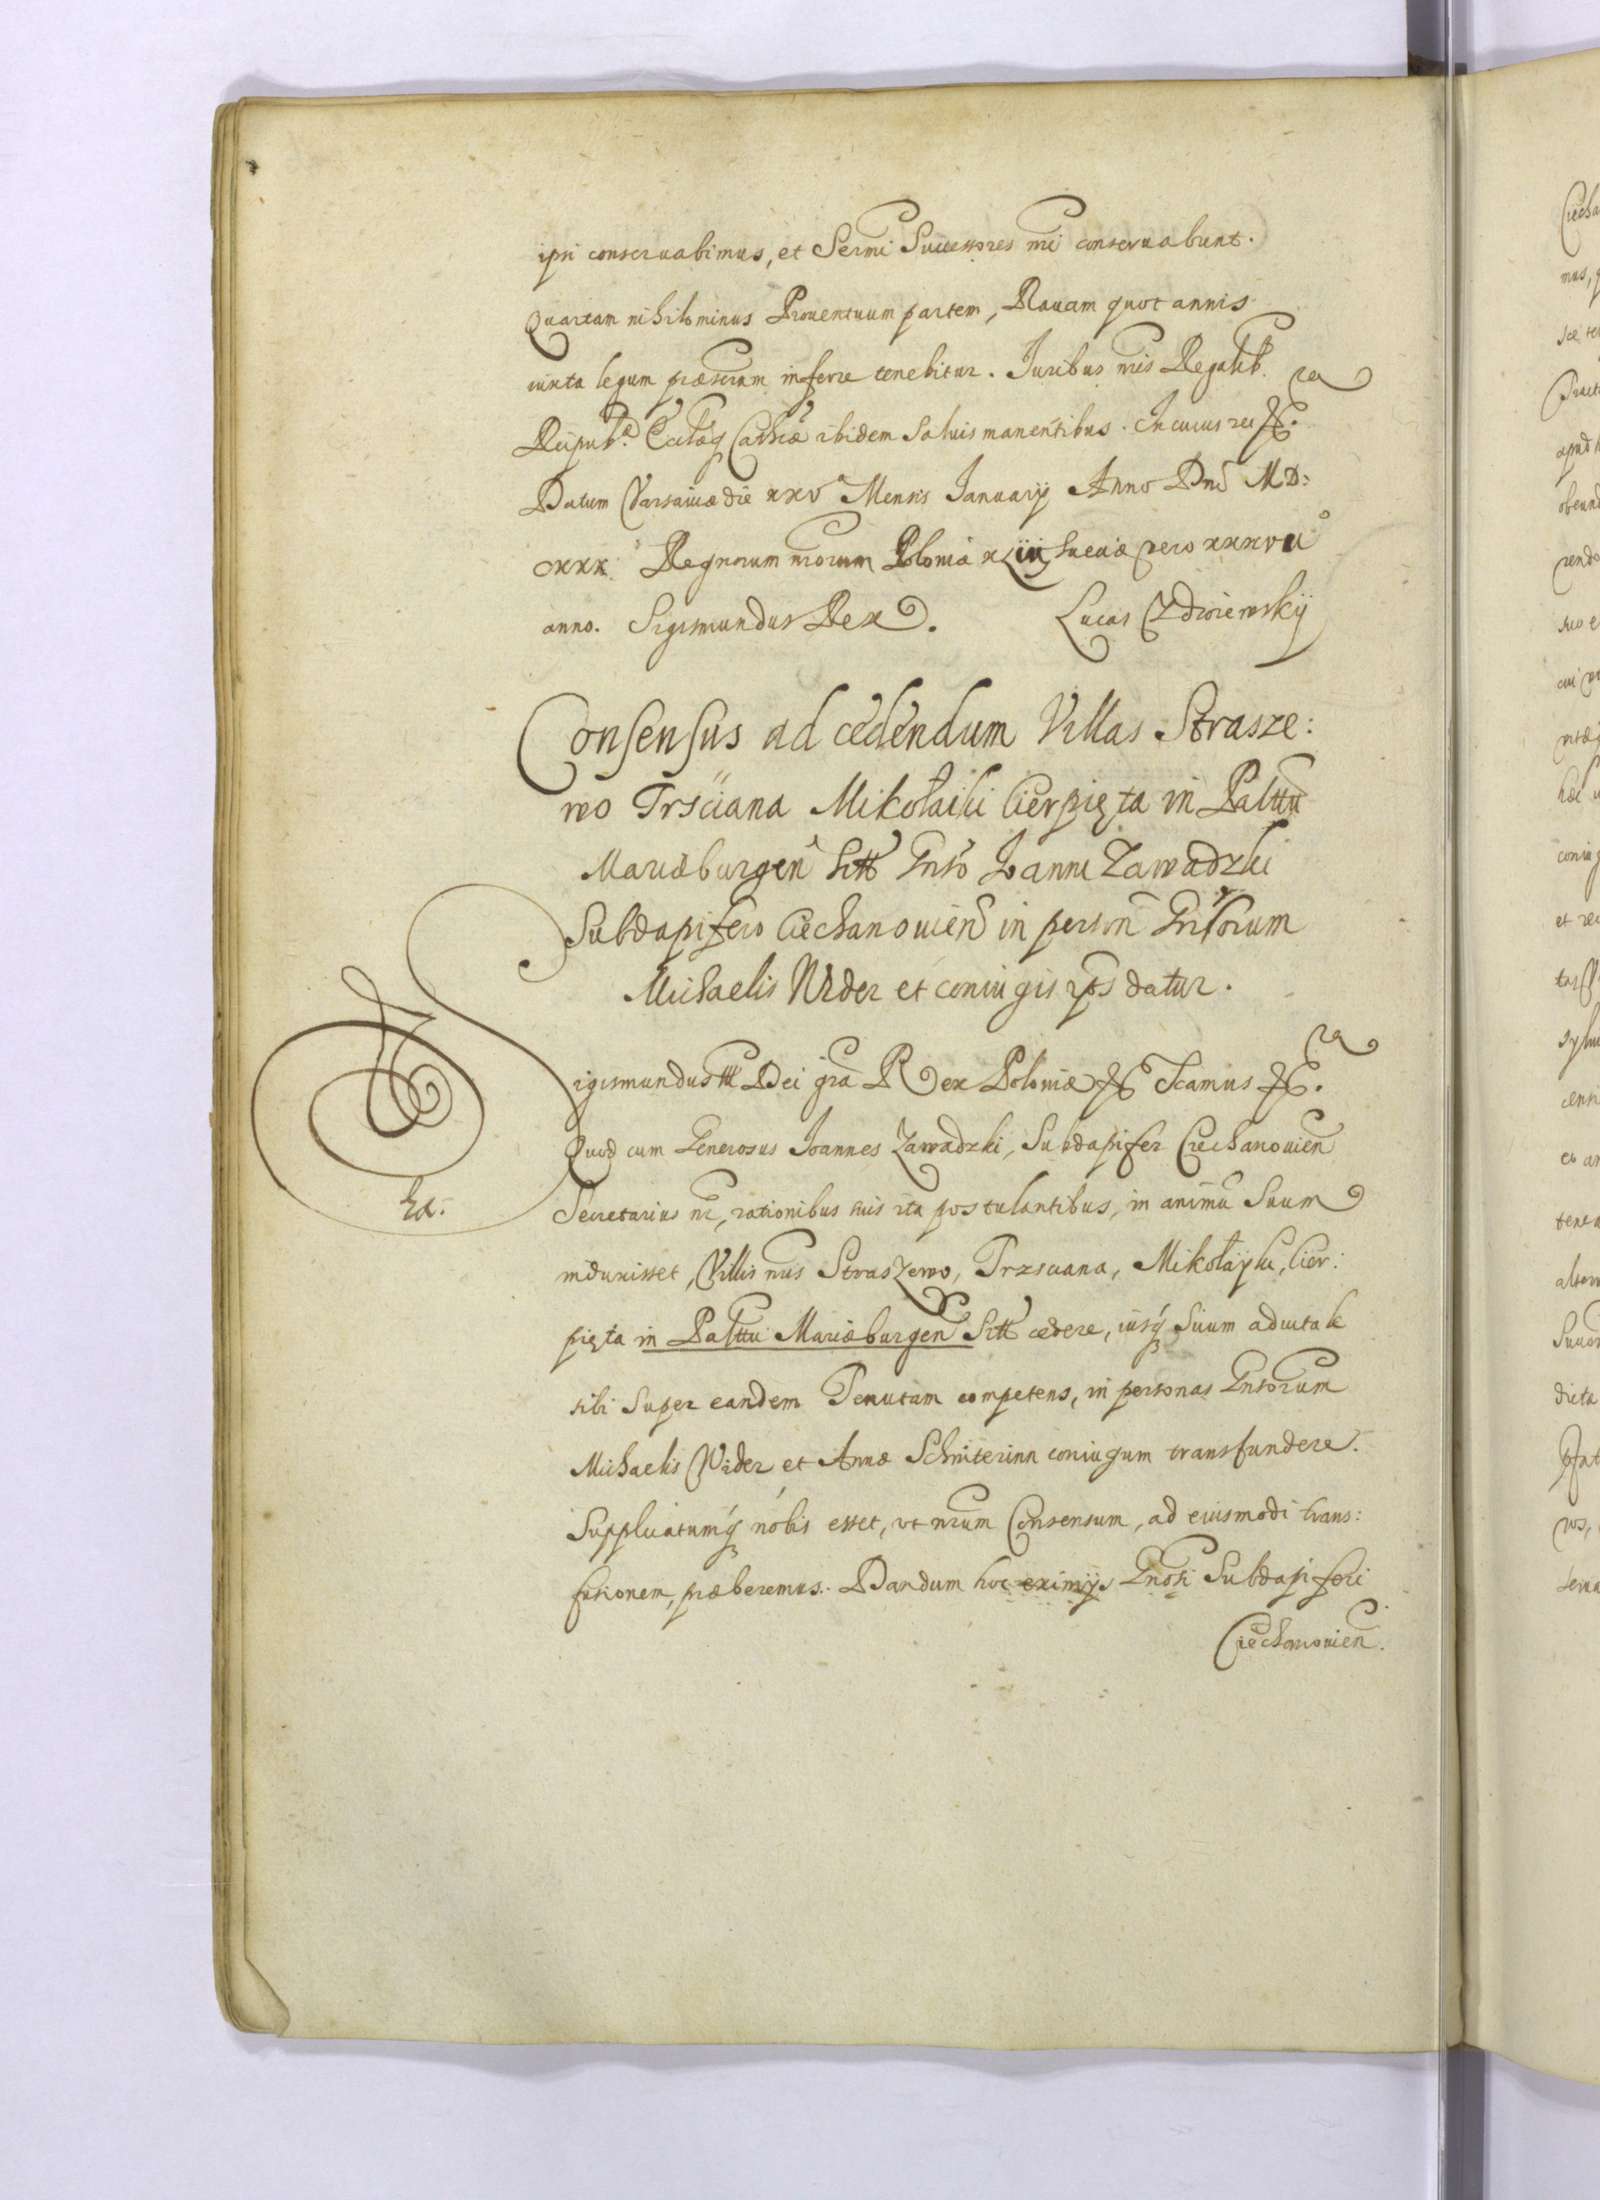 ipsi conseruabimus, et Sermi Successores nri conseruabunt.
Quartam nihilominus Prouentuum partem, Rauam quot annis
iuxta legum præscrum inferre tenebitur. Juribus nris Regalib.
Reipub. Ecclæq Cathcæ ibidem saluis manentibus. In cuius rei
Datum Varsauiæ die xxv Mensis January Anno Dni MD:
cxxx. Regnorum nrorum Poloniæ xLiii Sueciæ vero xxxvii
anno. Sigismundus Rex. Lucas
Consensus ad cedendum Villas Strasze:
wo Trsciana Mikołaiki Cierpięta in Palttu
Mariæburgen sitt Gnso Joanni Zawadzki
Subdapifero Ciechanouien in person Gnsorum
Michaelis Wider et coniugis ipss datur.
Sigismundus III Dei gra Rex Poloniæ &c
Quod cum Generosus Joannes Zawadzki, Subdapifer Ciechanouien
Secretarius nr, rationibus suis ita postulantibus, in animu Suum
induxisset, Villis nris Straszewo, Trzsciana, Mikołayki, Cier:
pięta in Palttu Mariæburgen sitt cedere, iusq Suum aduitale
sibi super eandem Tenutam competens, in personas Gnsorum
Michaelis Wider et Annæ Schniterinn coniugum transfundere.
Supplicatumq nobis esset, vt nrum Consensum, ad eiusmodi trans:
fusionem, præberemus. Dandum hoc eximijs Gnosi Subdapiferi
Ciechanouien.